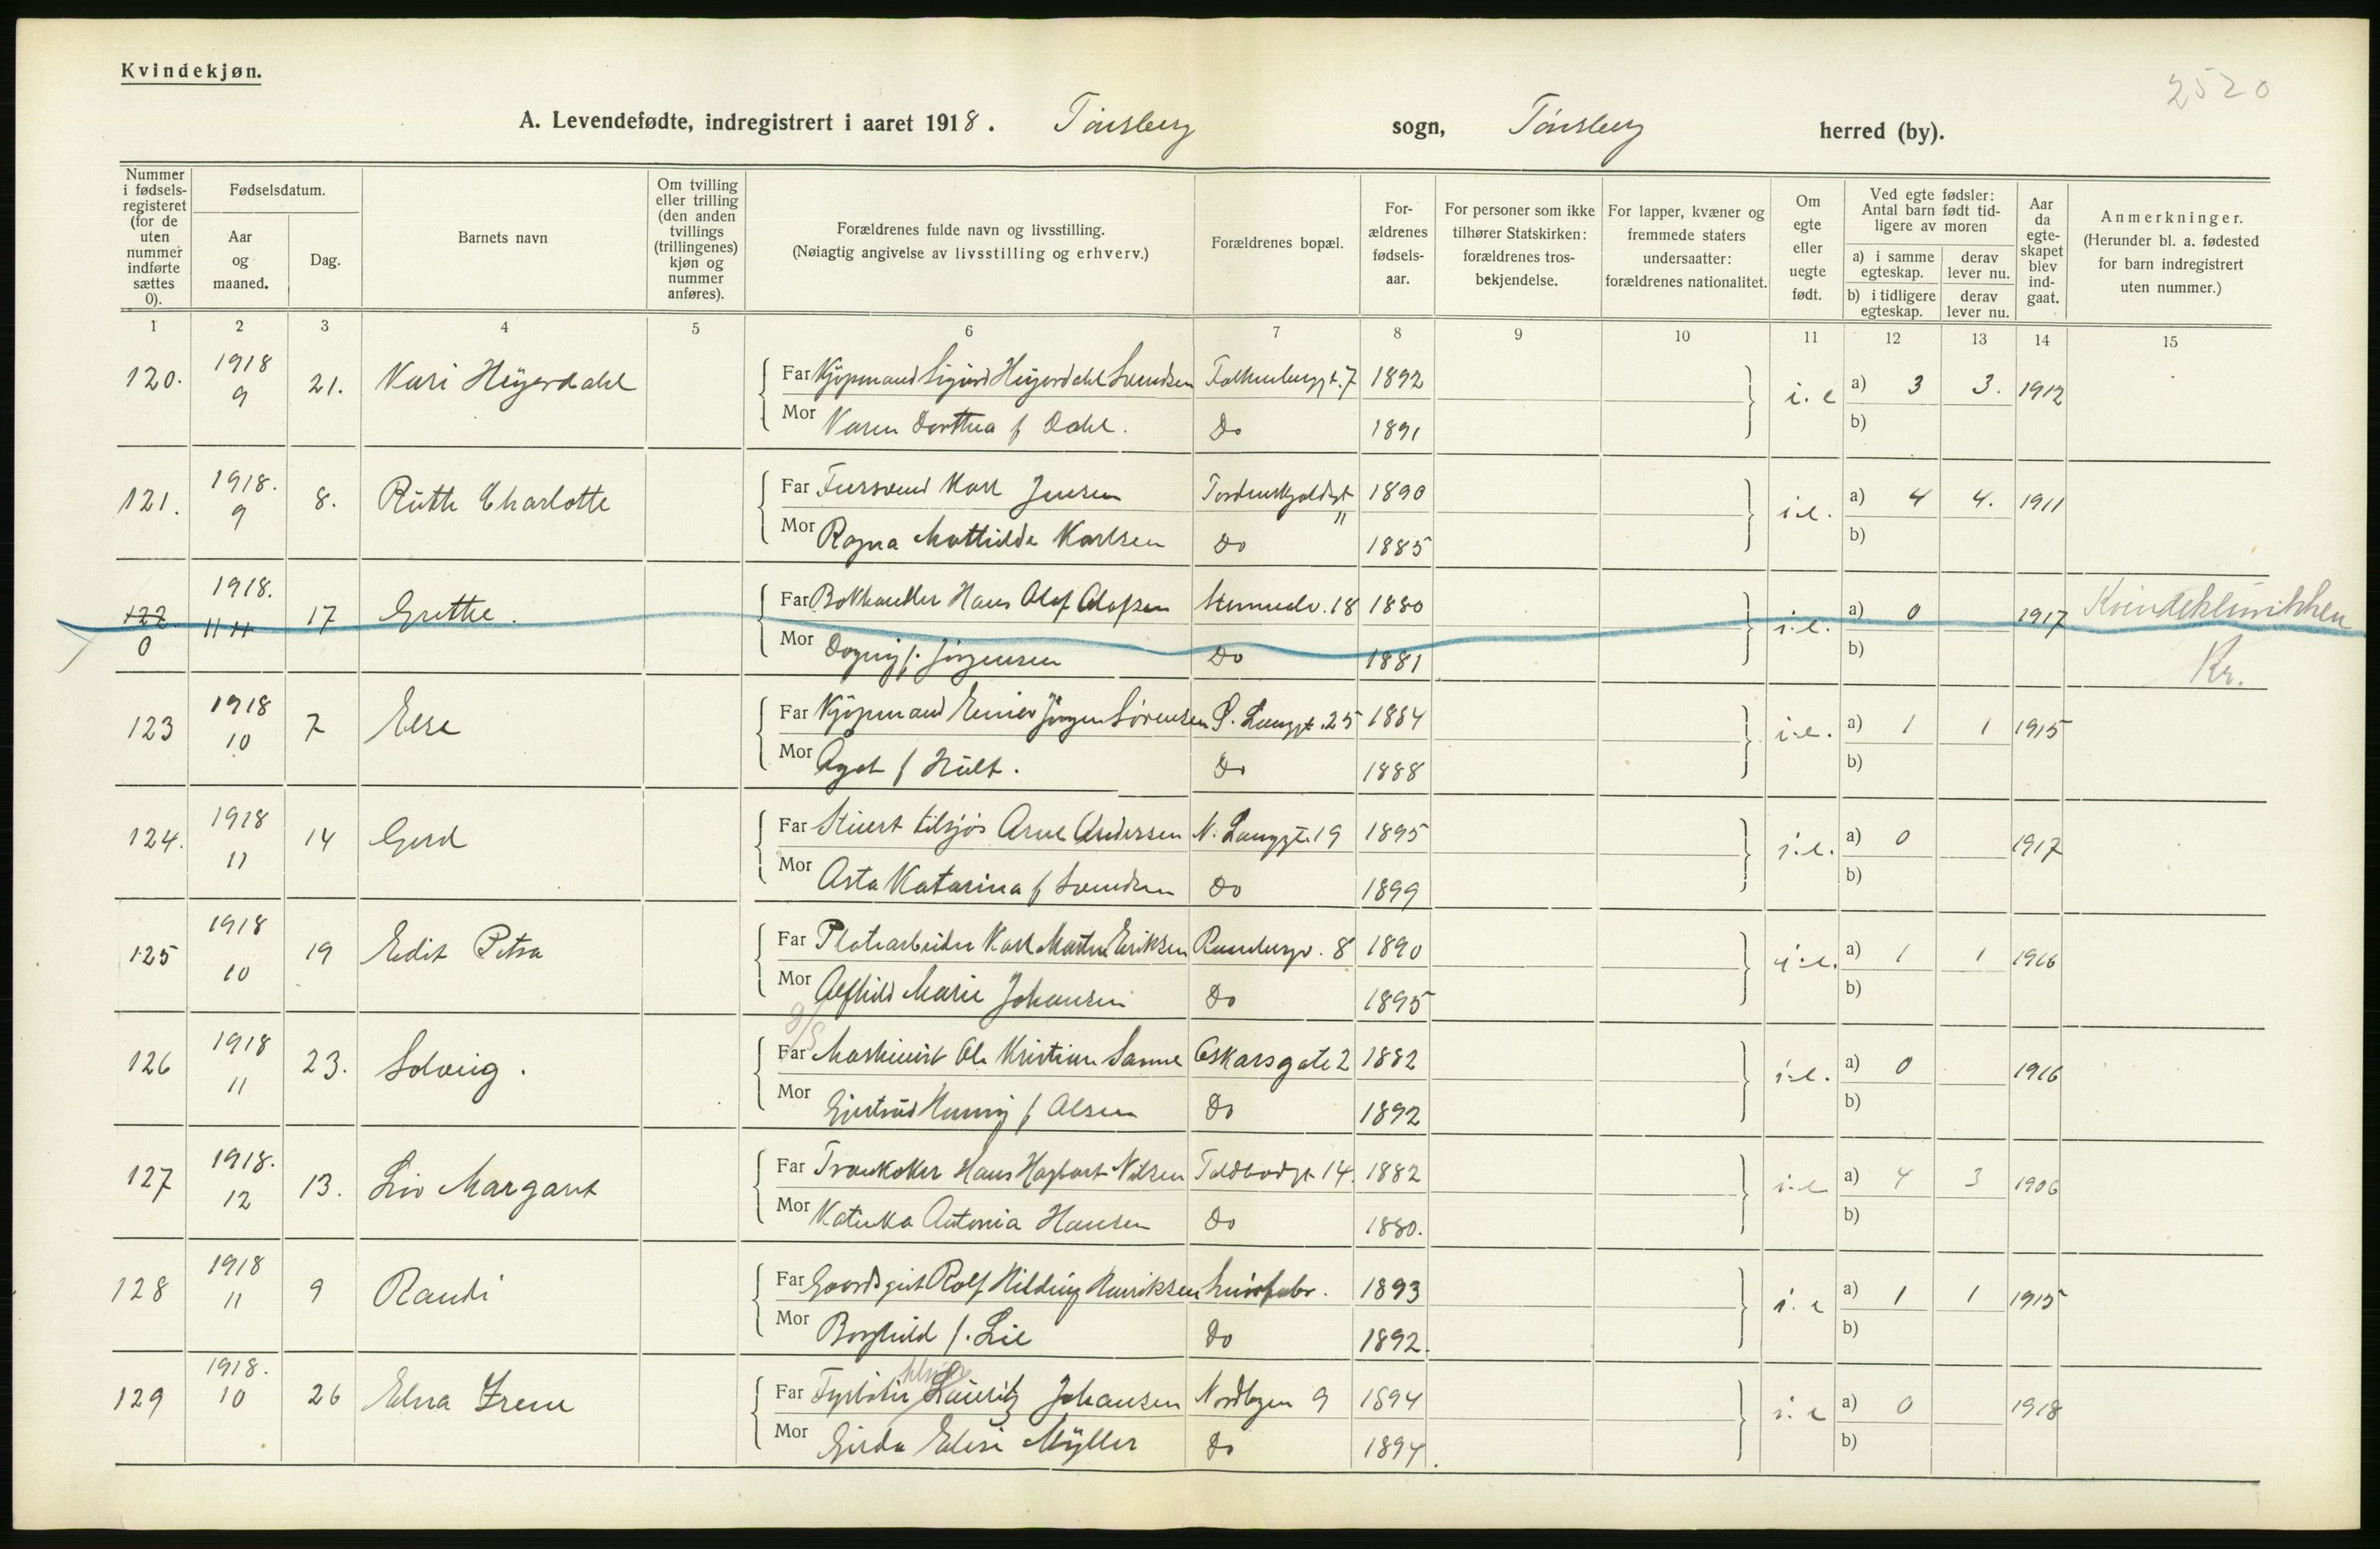 Kvindekjøn.
2520
A. Levendefødte, indregistrert i aaret 1918. Tönsberg sogn, Tönsberg herred (by).
Nummer i fødsels-registeret (for de uten nummer indførte sættes 0).
Fødselsdatum.
Aar og maaned.
Dag.
Barnets navn
Om tvilling eller trilling (den anden tvillings (trillingenes) kjøn og nummer anføres).
Forældrenes fulde navn og livsstilling.
(Nøiagtig angivelse av livsstilling og erhverv.)
Forældrenes bopæl.
For-ældrenes fødsels-aar.
For personer som ikke tilhører Statskirken: forældrenes tros-bekjendelse.
For lapper, kvæner og fremmede staters undersaatter: forældrenes nationalitet.
Om egte eller uegte født.
Ved egte fødsler: Antal barn født tid-ligere av moren
a) i samme egteskap.
derav lever nu.
b) i tidligere egteskap.
derav lever nu.
Aar da egte-skapet blev ind-gaat.
Anmerkninger.
(Herunder bl. a. fødested for barn indregistrert uten nummer.)
1 2 3 4 5 6 7 8 9 10 11 12 13 14 15
120. 1918 9 21. Kari Heyerdahl Far Kjøpmand Sigurd Heyerdahl Svendsen 7 1892 i. e a) 3 3. 1912
Mor Karen Dorthea f Dahl. Do 1891 b)
121. 1918. 9 8. Ruth Charlotte Far Karl Jensen Tordenskjoldsgt 11 1890 i.e. a) 4 4. 1911
Mor Ragna Mathilde Karlsen Do 1885 b)
122 0 1918. 11 17 Grethe. Far Bokhandler Hans Olaf Olafsen 18 1880 i.e. a) 0 1917 Kvindeklinikken
Mor Dagny f. Jörgensen Do 1881 b) Kr.
123 1918 10 7 Else Far Kjöpmand Einar Jörgen Sörensen S. Langgt. 25 1884 i.e. a) 1 1 1915
Mor Agot f Hult. Do 1888 b)
124. 1918 11 14 Gerd Far Stuert tilsjös Arne Andersen N. Langgt. 19 1895 i.e. a) 0 1917
Mor Asta Katarina f Svendsen Do 1899 b)
125 1918 10 19 Edit Petra Far Platearbeider Karl Martin Eriksen 8 1890 i.e. a) 1 1 1916
Mor Alfhild Marie Johansen Do 1895 b)
126 1918 11 23. Solveig. Far Maskinist Ole Kristian Sanne Oskarsgate 2 1882 i.e. a) 0 1916
Mor Gjertrud f Olsen Do 1892 b)
127 1918. 12 13. Liv Margaret Far Trankoker Hans Hagbart Nilsen Toldbodgt 14. 1882 i.e a) 4 3 1906
Mor Katinka Antonia Hansen Do 1880. b)
128 1918 11 9 Randi Far Rolf Hilding Henriksen 1893 i. e a) 1 1 1915
Mor Borghild f. Lie Do 1892. b)
129 1918. 10 26 Edna Irene Far Fyrböter Lauritz Johansen Nordbyen 9 1894 i. e a) 0 1918
Mor Gerda Elise Myller Do 1894. b)